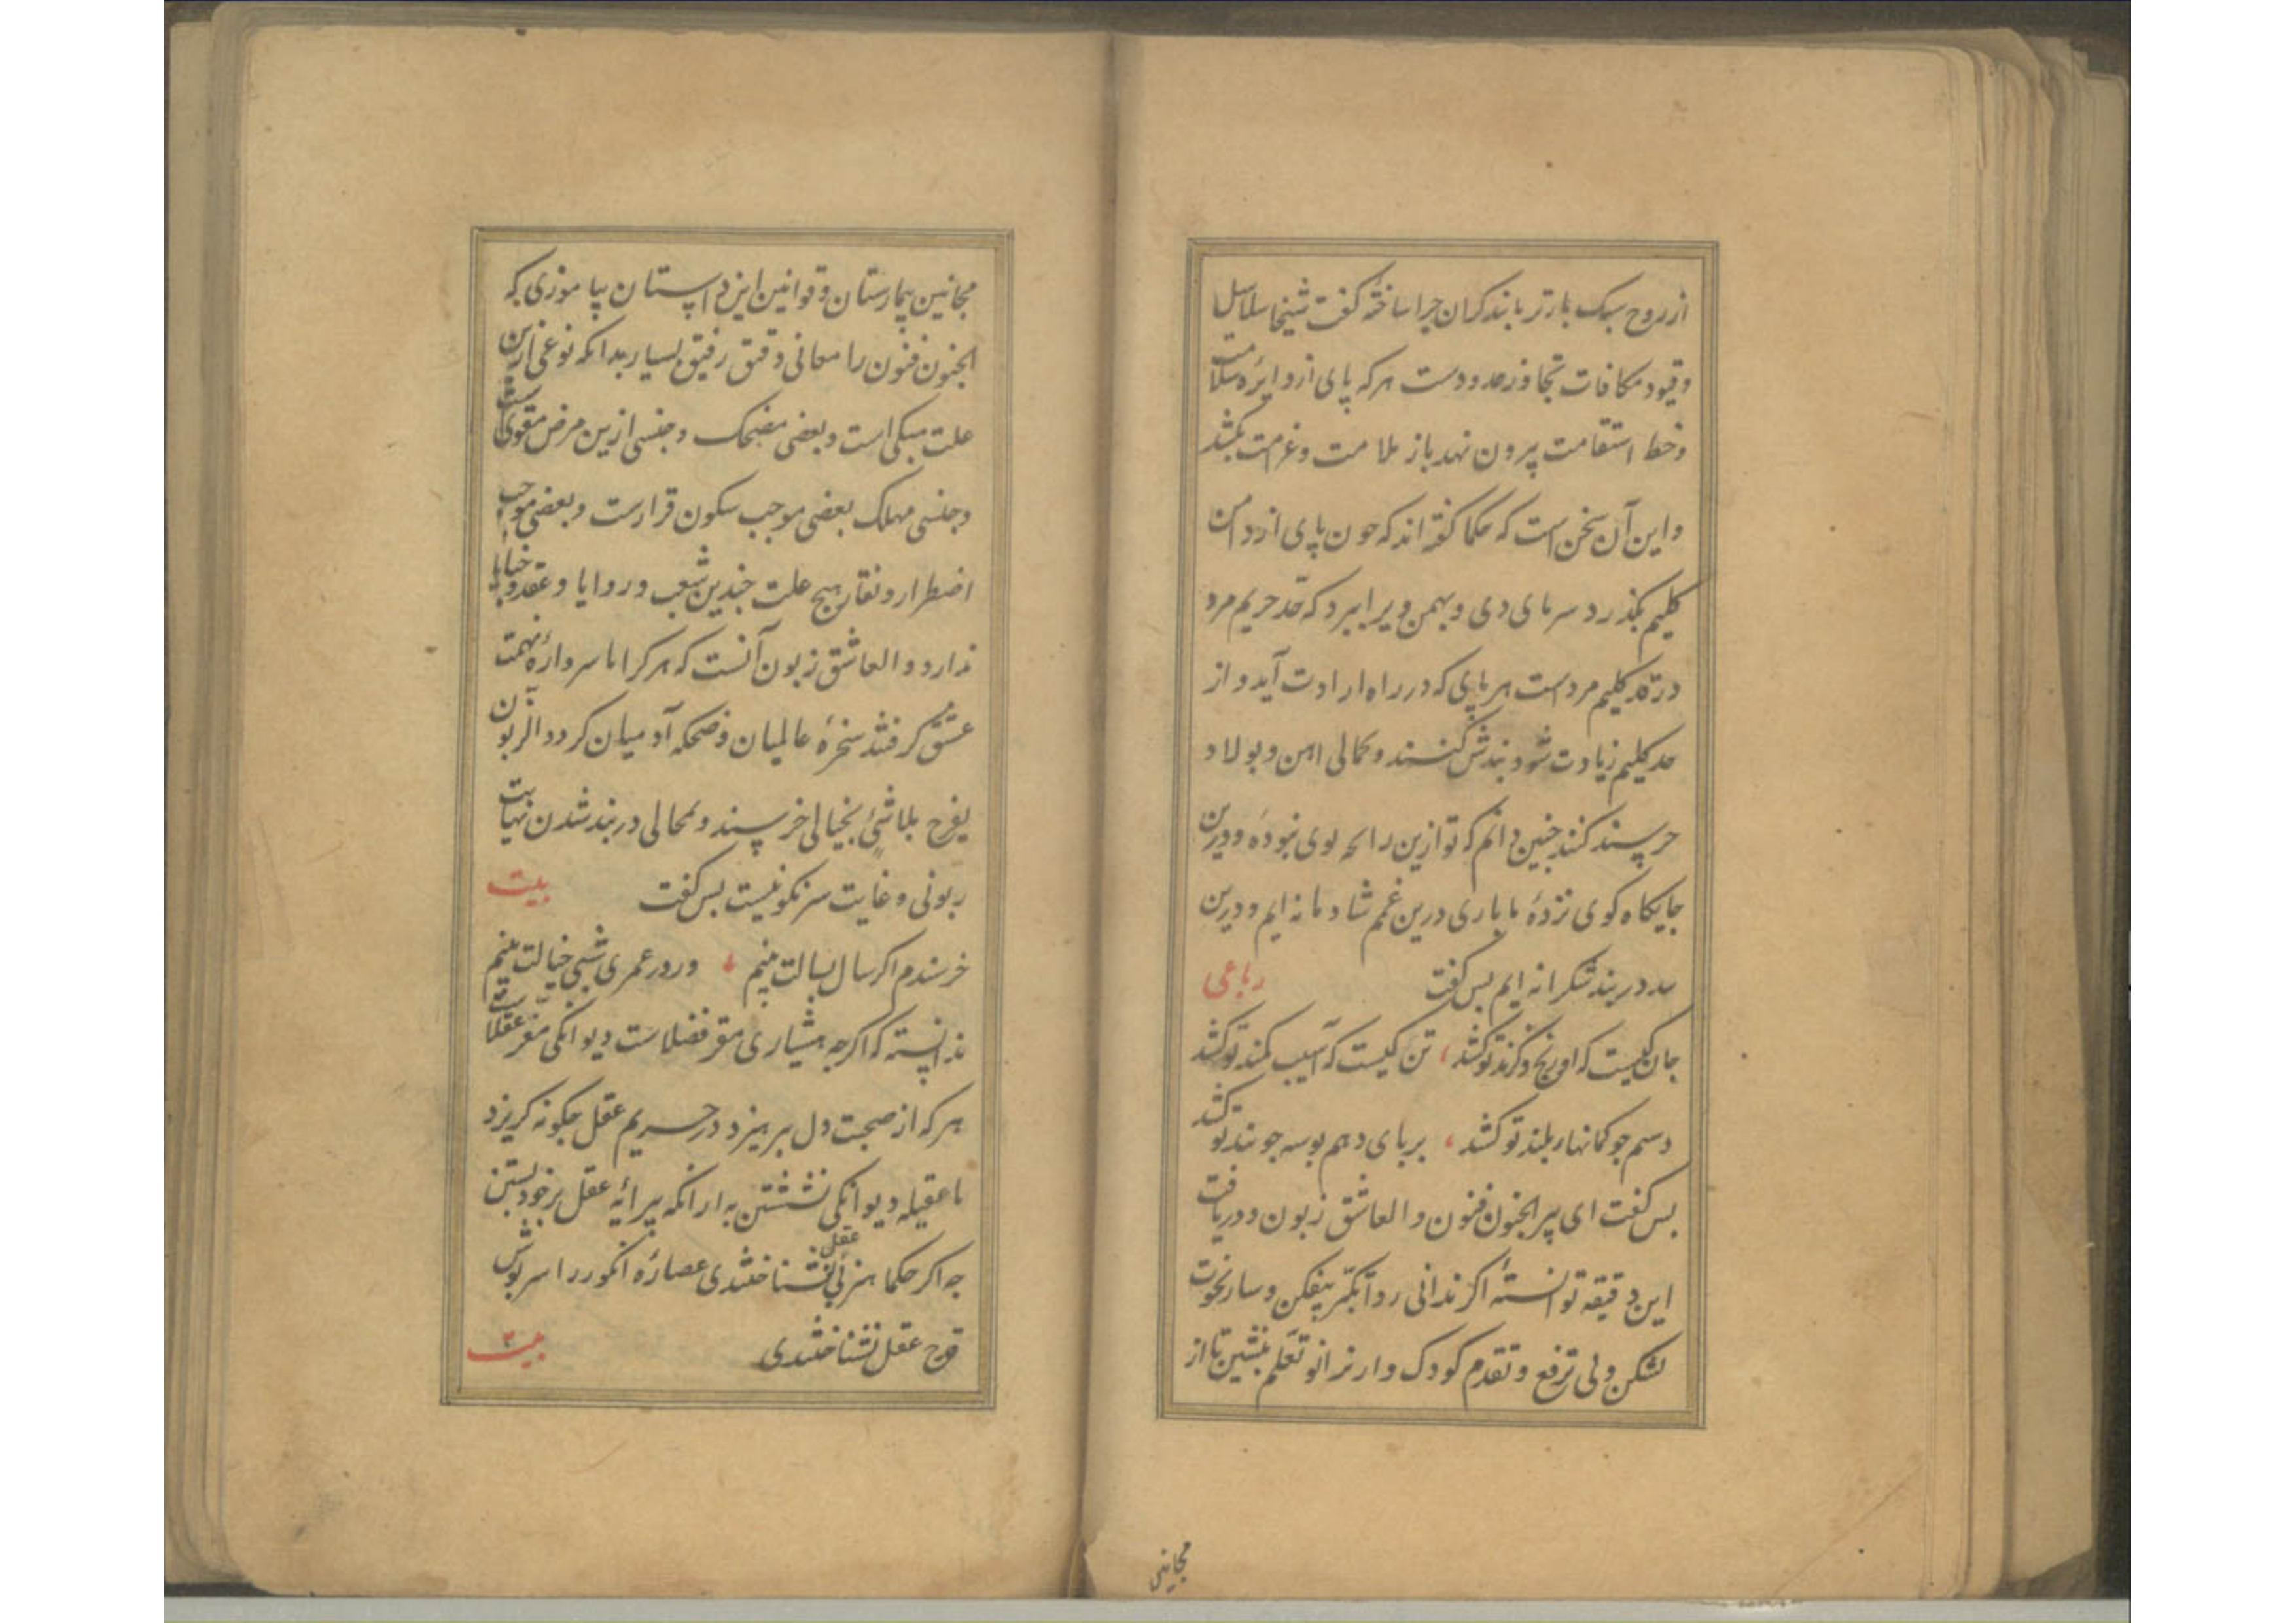 از روح سبک بارتر با بند کران چرا ساختهٔ کفت شیخا سلاسل
وقیود مکافات تجاوز حدودست هرکه پای از دایرهٔ سلامت
وخط استقامت پیرون نهد باز ملامت وغرامت بکشد
و این آن سخن است که حکما کفته اند که جون پای از دامن
کلیم بکذرد سرمای دی و بهمن ویرا ببرد که حد حریم مرد
در قد کلیم مردست هر پای که در راه ارادت آید و از
حد کلیم زیادت شود بندش کنند و بحالی اهن و بولاد
خرسند کنند جنین دانم که تو ازین رایحه بوی نبودهٔ و درین
جایکاه کوی نزدهٔ ما باری درین غم شادمانه ایم و درین
بند شکرانه ایم بس کفت رباعی
جان کیست که او رنج و کزند تو کشد ، تن کیست که آسیب کمند تو کشد
دستم جو کمانهاء بلند تو کشد ، بر پای دهم بوسه جو بند تو کشد
بس کفت ای پیر الجنون فنون و العاشق زبون و دریافت
این دقیقه توانستهٔ اکر ندانی ردآ تکبّر بیفکن و ساز نخوت
بشکن و بی ترفع و تقدم کودک وار بزانو تعلّم بنشین تا از
مجانین
مجانین بیمارستان و قوانین این دبستان بیاموزی که
الجنون فنون را معانی دقیق رفیق بسیار بدانکه نوعی ازین
علت مبکی است و بعضی مضحک و جنسی ازین مرض مقویست
وجنسی مهلک بعضی موجب سکون قرارست و بعضی موجب
اضطرار و نقار هیچ علت جندین شعب و زوایا و عقد و خبایا
ندارد و العاشق زبون آنست که هر کرا با سر دارهٔ تهمت
عشق کرفتند سخرهٔ عالمیان و ضحکه آدمیان کردد الزبون
یفرح بلاشئ بخیالی خرسند و بمحالی در بند شدن نهایت
زبونی و غایت سرنکونیست بس کفت بیت
خرسندم اکر سال بسالت بینم ، ور در عمری شبی خیالت بینم
ندانسته که اکرجه هشیاری مقر فضلاست دیوانکی مفر عقلاست
هرکه از صحبت دل بپرهیزد در حریم عقل جکونه کریزد
با عقیله دیوانکی نشستن به از انکه پیرایهٔ عقل بر خود بستن
جه اکر حکما هنر بی عقلی نشناختندی عصارهٔ انکور را سربوش
قدح عقل نشناختندی بیت